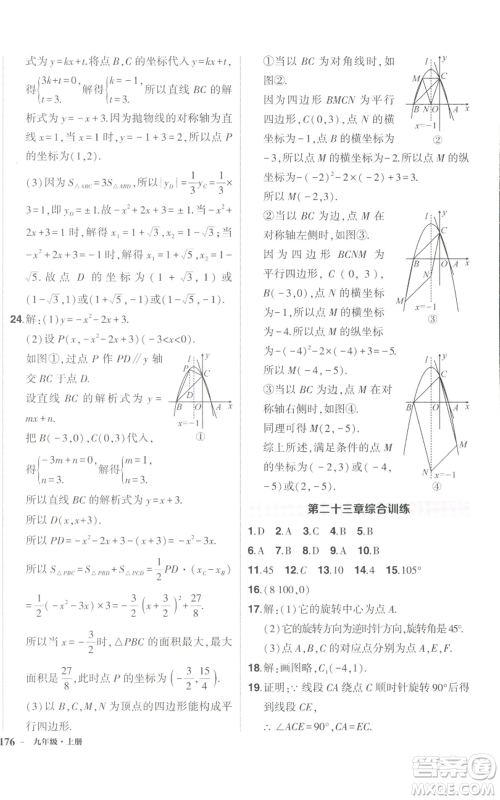 式为 y=kx+t.将点 B,C 的坐标代入 y=kx+t,
得{3k+t=0, t=3. 解得{k=-1, t=3. 所以直线 BC 的解
析式为 y=-x+3.因为抛物线的对称轴为直
线 x=1,所以点 P 的横坐标为1,当 x=1时,y
=-1+3=2.故点 P 的坐标为(1,2).
(3)因为 S△ABC=3S△ABD,所以|yD|=1/3 yC=1/3×
3=1.当 yD=1时,-x²+2x+3=1.解得x=1±
√3.当 yD=-1时,-x²+2x+3=-1.解得x=1±
√5.故点 D 的坐标为(1+√3,1)或(1-√3,1)或
(1-√5,-1)或(1+√5,-1).
24.解:(1)y=-x²-2x+3.
(2)设点 P(x,-x²-2x+3)(-3<x<0).
如图①,过点 P 作 PD∥y 轴
交 BC 于点 D.
设直线 BC 的解析式为 y=
mx+n.
把 B(-3,0),C(0,3)代入,
得{-3m+n=0, n=3. 解得{m=1, n=3.
所以直线 BC 的解析式为 y=x+3.
所以 PD=-x²-2x+3-(x+3)=-x²-3x.
所以 S△PBC=S△PDB+S△PCD=1/2 PD·(xC-xB)=
1/2(-x²-3x)×3=-3/2(x+3/2)²+27/8.
所以当 x=-3/2时,△PBC 的面积最大,最大
面积为27/8,此时点 P 的坐标为(-3/2,15/4).
(3)以 B,C,M,N 为顶点的四边形能构成平行
四边形.
①当以 BC 为对角线时,如
图②.
因为四边形 BMCN 为平行
四边形,C(0,3),B(-3,0),
点 N 的横坐标为-1,
所以点 M 的横坐标为-2.
所以 M(-2,3).
②当以 BC 为边,点 M 在
对称轴左侧时,如图③.
因为四边形 BCNM 为平
行四边形,C(0,3),
B(-3,0),点 N 的横坐标
为-1,
所以点 M 的横坐标为
-4.所以点 M 的纵坐标
为-(-4)²-2×(-4)+3=
-5.所以 M(-4,-5).
③当以 BC 为边,点 M 在对
称轴右侧时,如图④.
同理可得 M(2,-5).
综上所述,满足条件的点 M
的坐标为(-2,3)或(-4,
-5)或(2,-5).
l y P C D B O A x x=-1 ①
l y M C B N O A x x=-1 ②
l y C B O A x N M x=-1 ③
l y C B O A x M N x=-1 ④
第二十三章综合训练
1.D 2.A 3.C 4.B 5.B
6.A 7.A 8.D 9.B 10.B
11.45 12.3 13.10 14.A 15.105°
16.(8 100,0)
17.解:(1)它的旋转中心为点 A.
(2)它的旋转方向为逆时针方向,旋转角是45°.
(3)点 A,B,C 的对应点分别为点 A,E,F.
18.解:画图略,C₁(-4,1).
19.证明:∵线段 CA 绕点 C 顺时针旋转90°,
∴∠ACE=90°,即∠ACB+∠BCE=90°.
176 - 九年级·上册